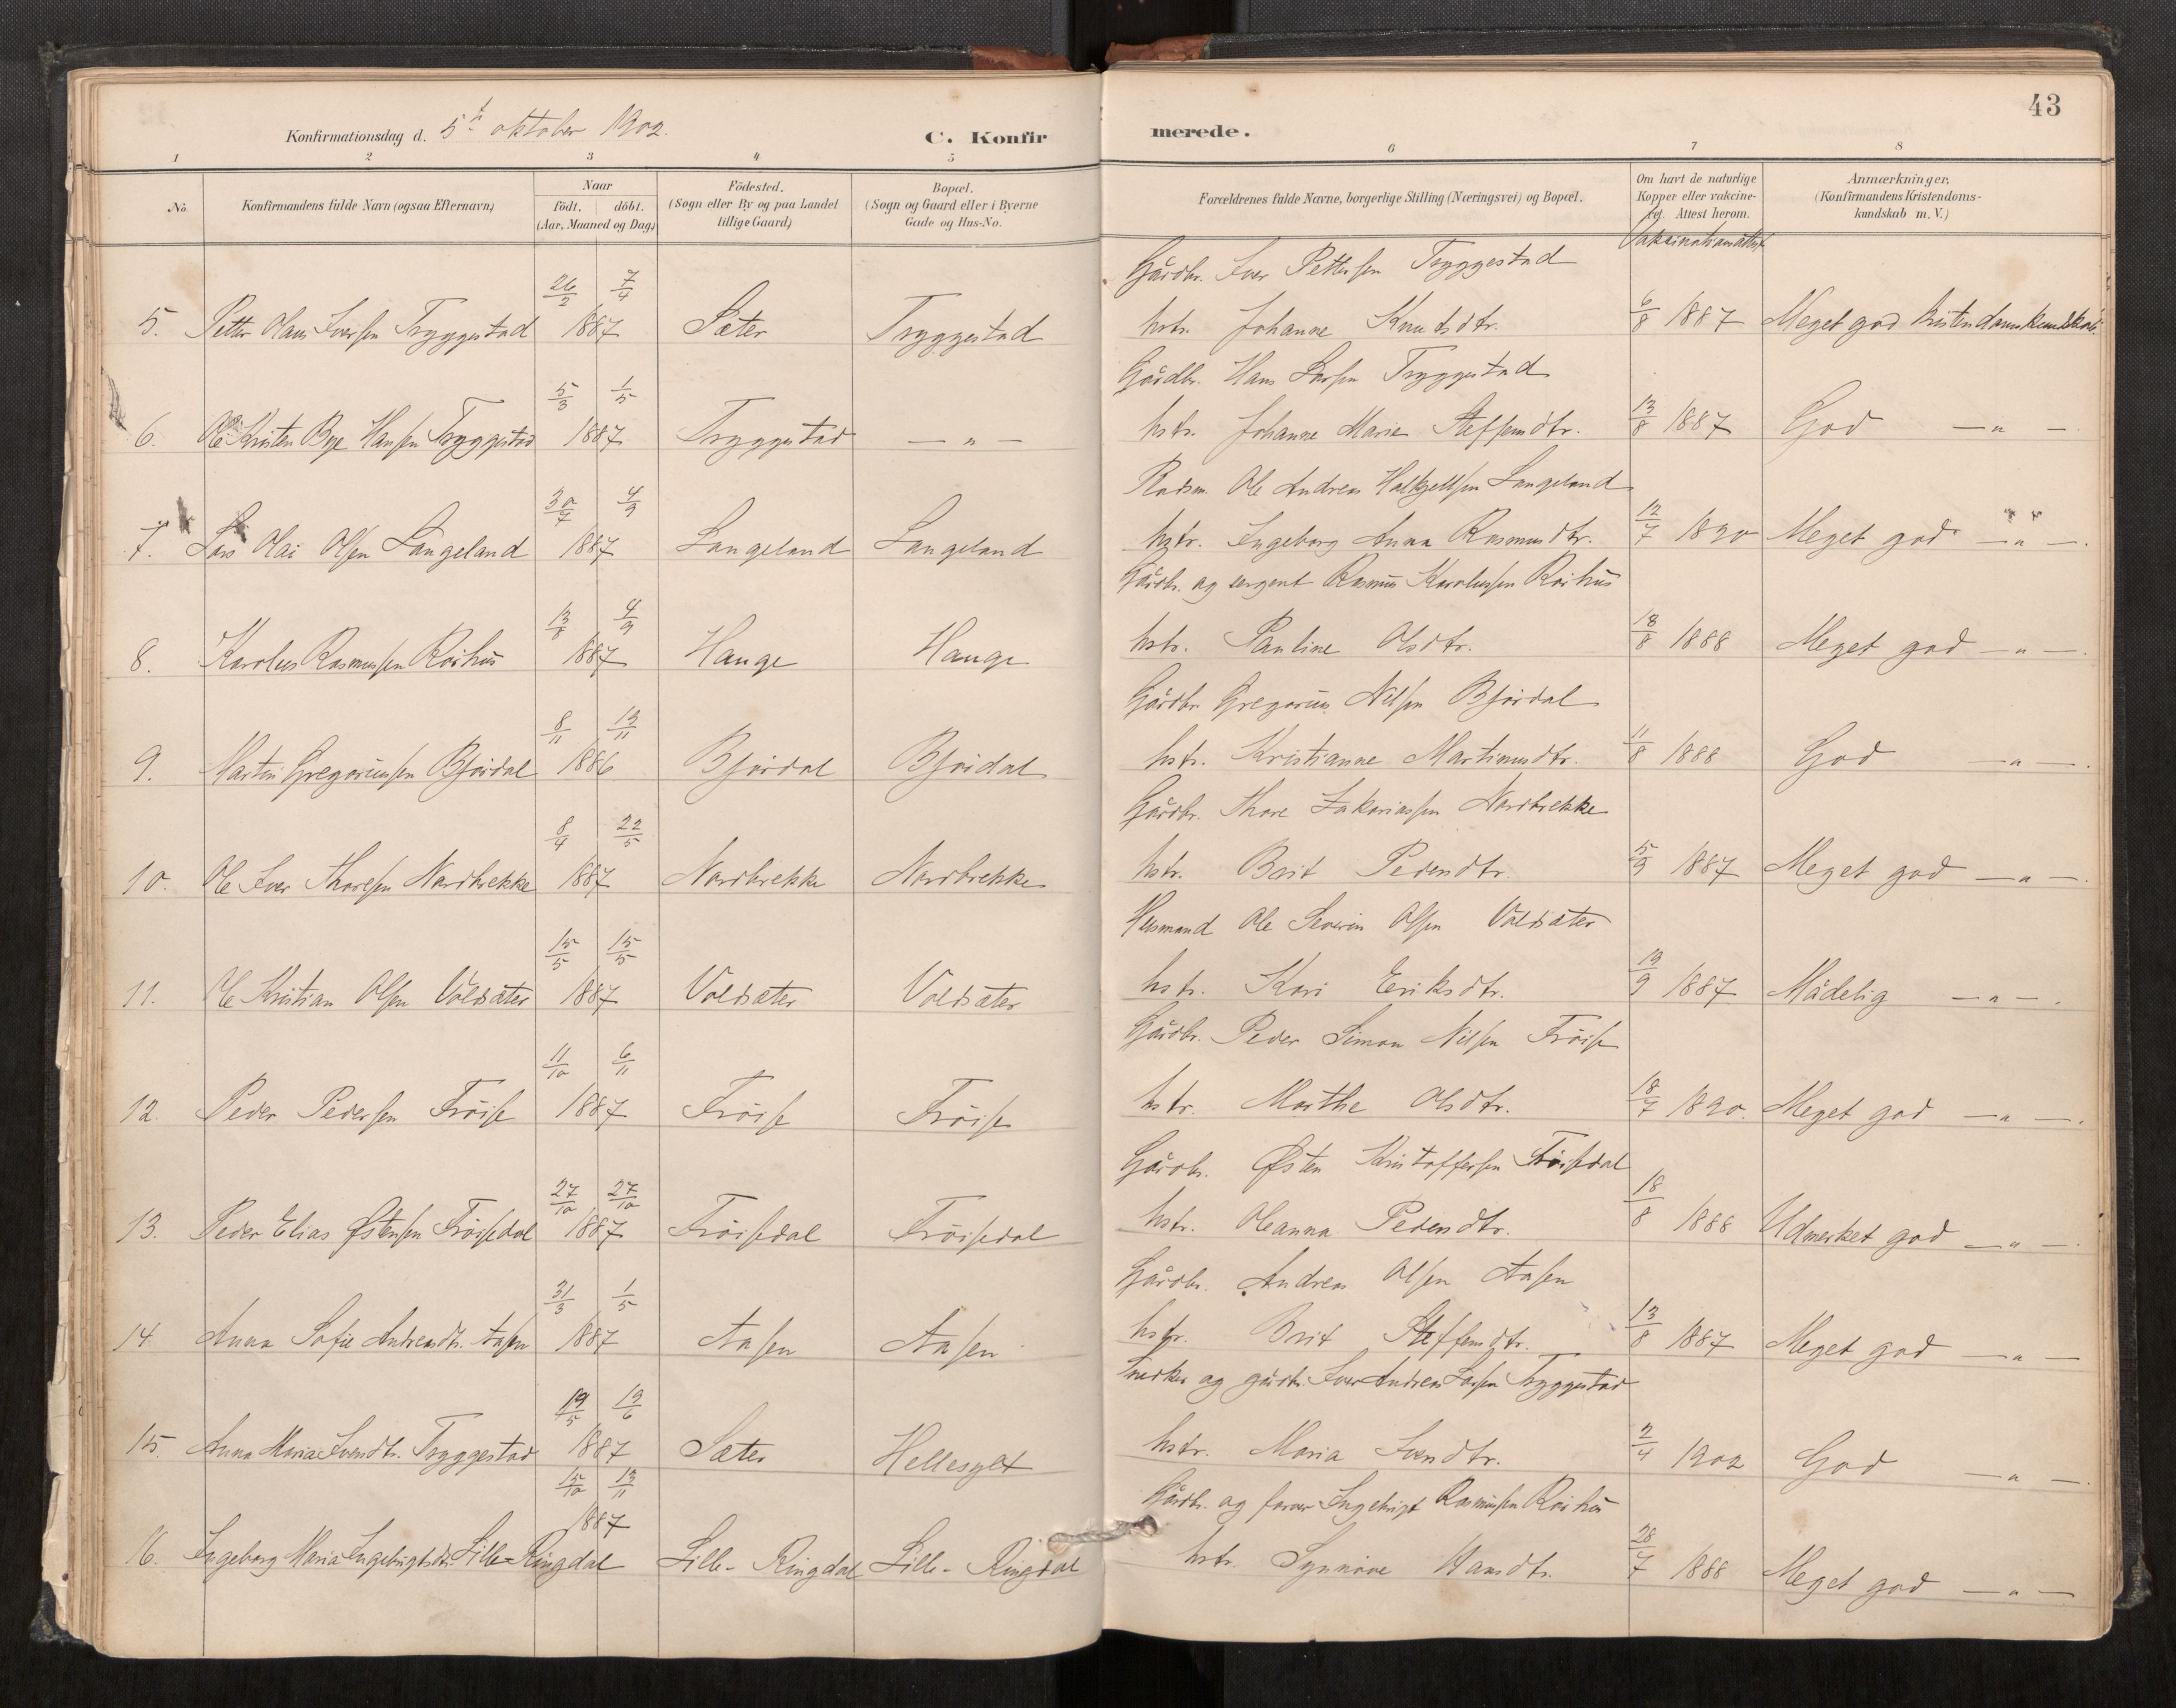 43
Konfirmationsdag d. 5te oktober 1902.
C. Konfirmerede.
1 2 3 4 5 6 7 8
No.
Konfirmandens fulde Navn (ogsaa Efternavn)
Naar
Födt. döbt.
(Aar, Maaned og Dag)
Födested.
(Sogn eller By og paa Landet
tillige Gaard)
Bopæl.
(Sogn og Gaard eller i Byerne
Gade og Hus-No.
Forældrenes fulde Navne, borgerlige Stilling (Næringsvei) og Bopæl.
Om havt de naturlige
Kopper eller vakcine-
ret. Attest herom.
Anmærkninger,
(Konfirmandens Kristendoms-
kundskab m. V.)
Vakcinationsattest
Gårdbr. Iver Pettersen Tryggestad
26/2 7/4
5. Petter Olaus Iversen Tryggestad 1887 Sæter Tryggestad hstr. Johanne Knutsdtr. 6/8 1887 Meget god kristendomskundskab.
Gårdbr. Hans Larsen Tryggestad
5/3 1/5
6. Ole Kristen Bye Hansen Tryggestad 1887 Tryggestad — " — hstr. Johanne Marie Steffensdtr. 13/8 1887 God — " —
Pladsm. Ole Andreas Halkjellsen Langeland
30/7 4/9
7. Lars Olai Olsen Langeland 1887 Langeland Langeland hstr. Ingeborg Anna Rasmusdtr. 12/7 1890 Meget god — " —.
Gårdbr. og sergent Rasmus Karolussen Röihus
13/8 4/9
8. Karolus Rasmussen Röihus 1887 Hauge Hauge hstr. Pauline Olsdtr. 18/8 1888 Meget god — " —.
Gårdbr. Gregorius Nilsen Björdal
8/11 13/11
9. Martin Gregoriussen Björdal 1886 Björdal Björdal hstr. Kristianne Martinusdtr. 11/8 1888 God — " —.
Gårdbr. Thore Zakariassen Nordbrekke
8/4 22/5
10. Ole Iver Thoresen Nordbrekke 1887 Nordbrekke Nordbrekke hstr. Brit Pedersdtr. 5/9 1887 Meget god — " —.
Husmand Ole Severin Olsen Voldsæter
15/5 15/5
11. Ole Kristian Olsen Voldsæter 1887 Voldsæter Voldsæter hstr. Kari Eriksdtr. 19/9 1887 Mådelig — " —.
Gårdbr. Peder Simon Nilsen Fröise
11/10 6/11
12. Peder Pedersen Fröise 1887 Fröise Fröise hstr. Marthe Olsdtr. 18/7 1890. Meget god — " —.
Gårdbr. Østen Kristoffersen Fröisedal
27/10 27/10
13. Peder Elias Østensen Fröisedal 1887 Fröisedal Fröisedal hstr. Oleanna Pedersdtr. 18/8 1888 Udmerket god — " —.
Gårdbr. Andreas Olsen Aasen
31/3 1/5
14. Anna Sofie Andreasdtr. Aasen 1887 Aasen Aasen hstr. Brit Steffensdtr. 13/8 1887 Meget god — " —
Snedker og gårdbr. Iver Andreas Larsen Tryggestad
19/5 19/6
15. Anna Maria Iversdtr. Tryggestad 1887 Sæter Hellesylt hstr. Maria Iversdtr. 2/4 1902 God — " —.
Gårdbr. og farver Ingebrigt Rasmussen Röihus
15/10 13/11
1887
16. Ingeborg Maria Ingebrigtsdtr. Lille-Ringdal Lille-Ringdal Lille-Ringdal hstr. Synnöve Hansdtr. 28/7 1888 Meget god — " —